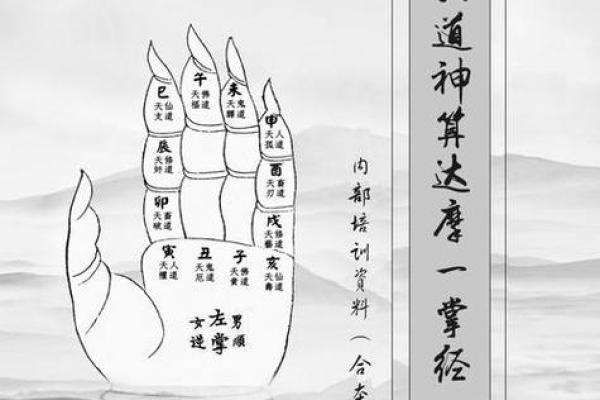 道神算达摩一掌经
内部培训資料（合
午
佛道
天福
未
鬼道
天驛
巳
仙道
天文
申
人道
天孤
辰
修道
天奸
酉
畜道
天刃
卯
畜道
天破
戌
修道
天藝
寅
人道
天權
丑
鬼道
天厄
子
佛道
天貴
亥
仙道
天壽
男順
左掌
女逆